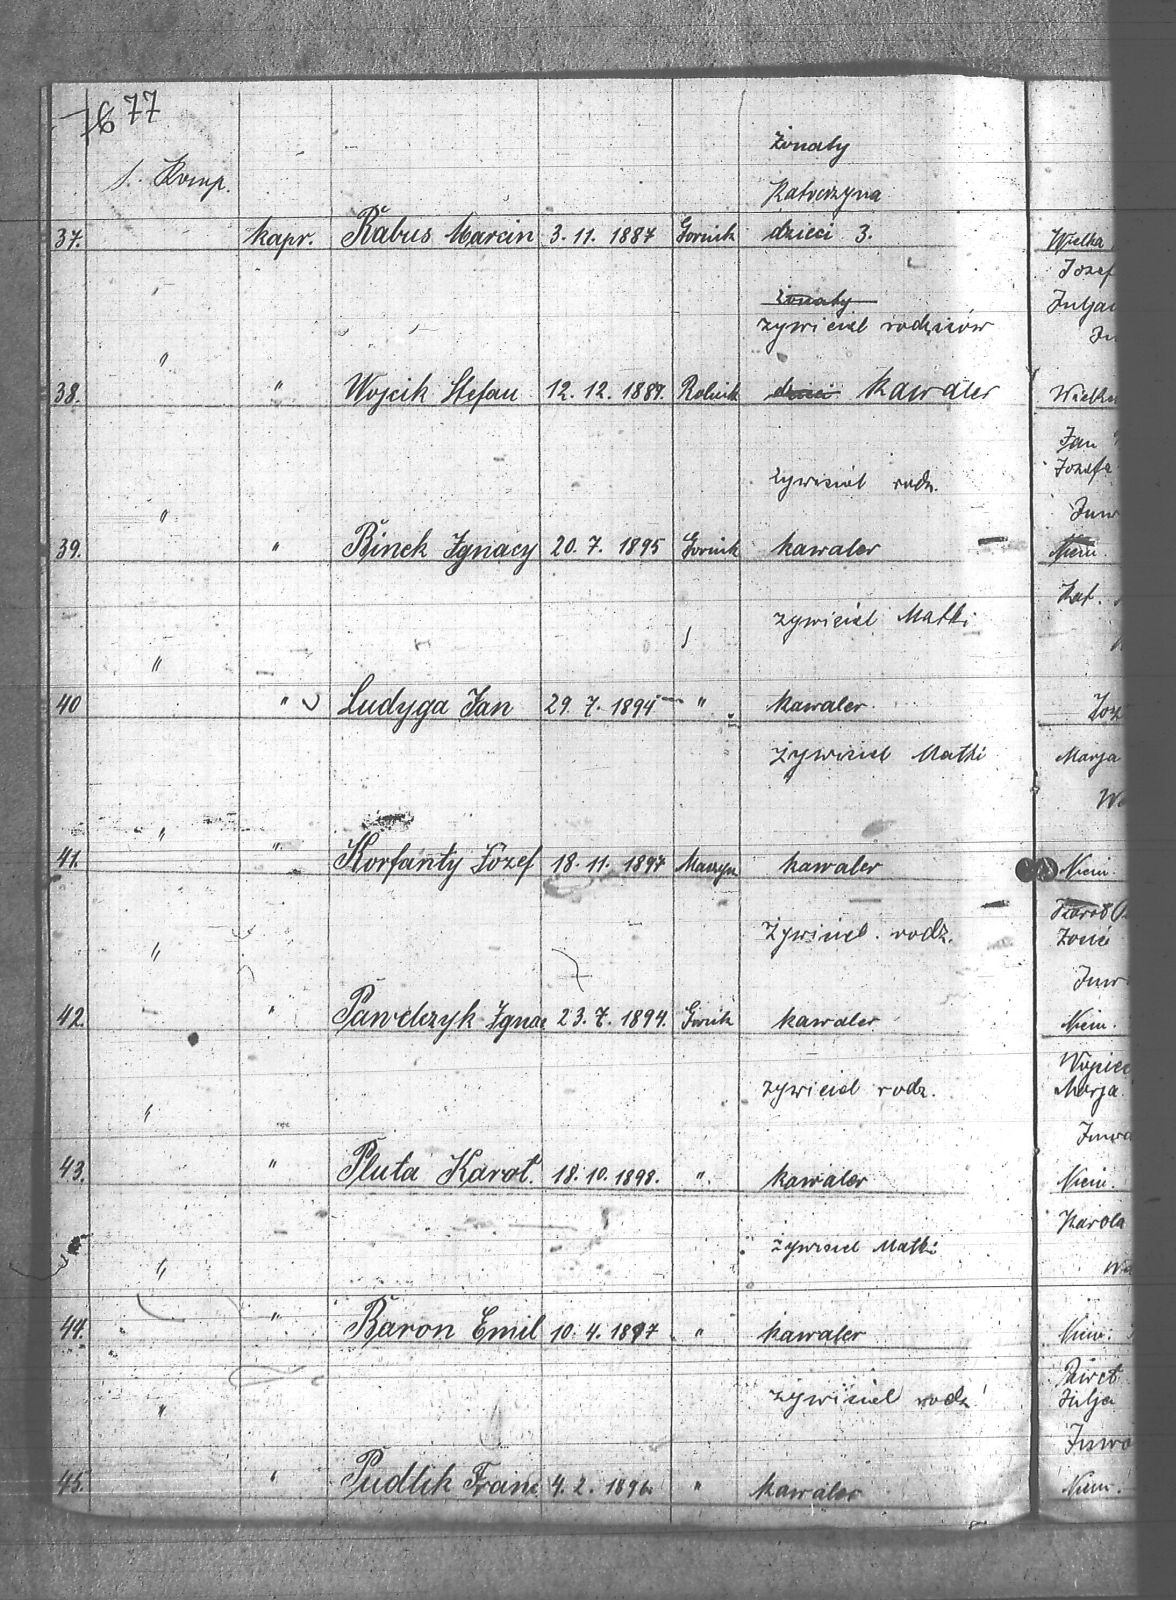 77
1. Komp.
żonaty
Katarzyna
37. kapr. Rabus Marcin 3. 11. 1887 Gornik dzieci 3. Wielka
Jozef
żonaty
zywiciel rodziców
" 
38. " Wojcik Stefan 12. 12. 1887. Rolnik dzieci kawaler
Jan
Jozefa
zywiciel rodz.
"
39. " Binek Ignacy 20. 7. 1895 Gornik kawaler Niem.
Kat.
zywiciel Matki
"
40 " Ludyga Jan 29. 7. 1894 " kawaler
zywiciel Matki Marja
"
41. " Korfanty Józef 18. 11. 1897 Maszyn kawaler Niem
Żywiciel. rodz.
"
42. " Pawelczyk Ignac 23. 7. 1894. Gornik kawaler Niem.
zywiciel rodz. Marja
"
43. " Pluta Karol. 18. 10. 1898. " kawaler Niem.
Karola
zywiciel Matki
"
44. " Baron Emil 10. 4. 1897 " kawaler Niem.
zywiciel rodz Julja
"
45. " Pudlik Franc 4. 2. 1896 " kawaler Niem.